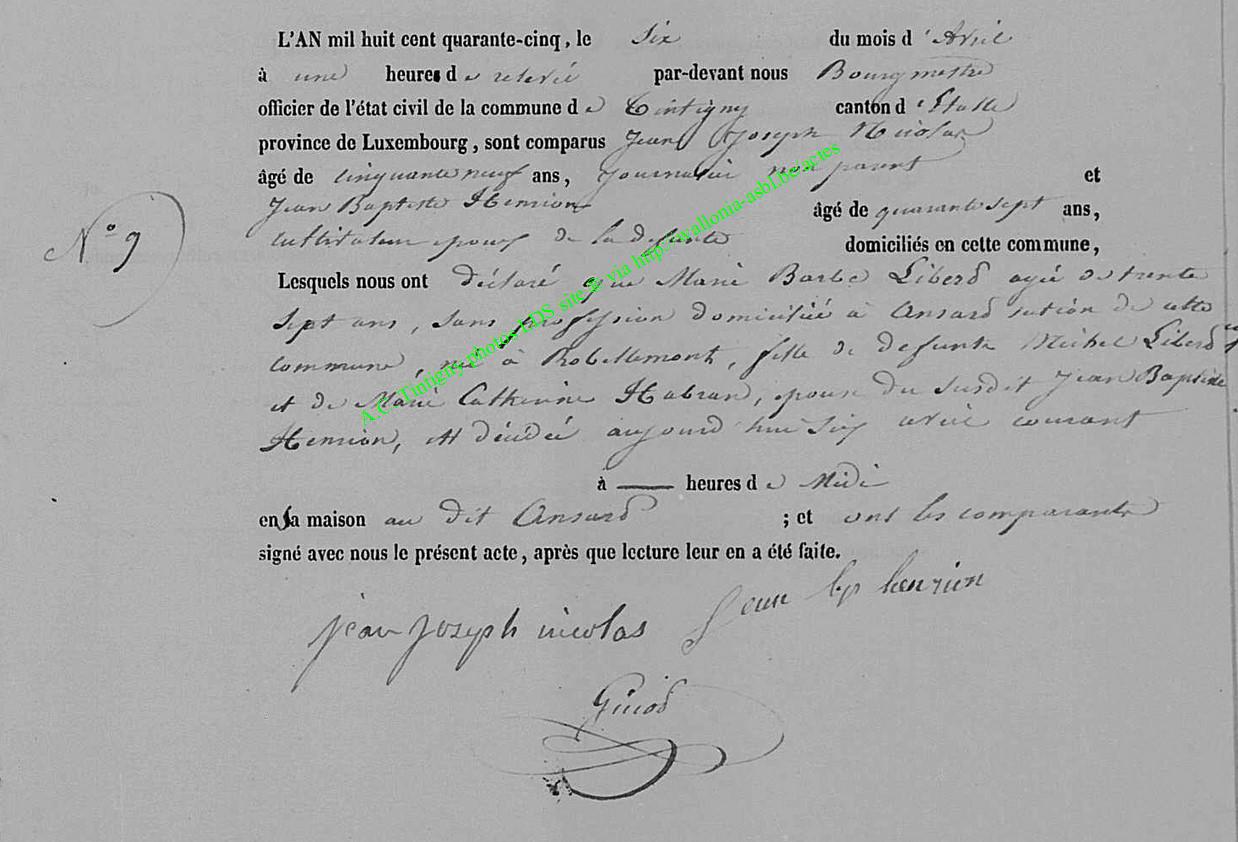 L'AN mil huit cent quarante-cinq, le Six du mois d'Avril
à une heures de relevée par-devant nous Bourgmestre
officier de l'état civil de la commune de Tintigny canton d'Etalle
province de Luxembourg, sont comparus Jean Joseph Nicolas
âgé de cinquante neuf ans, Journalier non parent et
Jean Baptiste Henrion âgé de quarante sept ans,
N° 9
instituteur epoux de la defunte domiciliés en cette commune,
Lesquels nous ont déclaré que Marie Barbe Liberd agée de trente
Sept ans, sans profession domiciliée à Ansard section de cette
commune, née à Robellemont, fille de defunts Michel Liberd
et de Marie Catherine Habran, epouse du susdit Jean Baptiste
Henrion, est décédée aujourd'hui six avril courant
à — heures de Midi
en sa maison au dit Ansard ; et ont les comparants
signé avec nous le présent acte, après que lecture leur en a été faite.
jean joseph nicolas Jean bp henrion
A.C. Tintigny photos LDS site @ via http://wallonia-asbl.be/actes